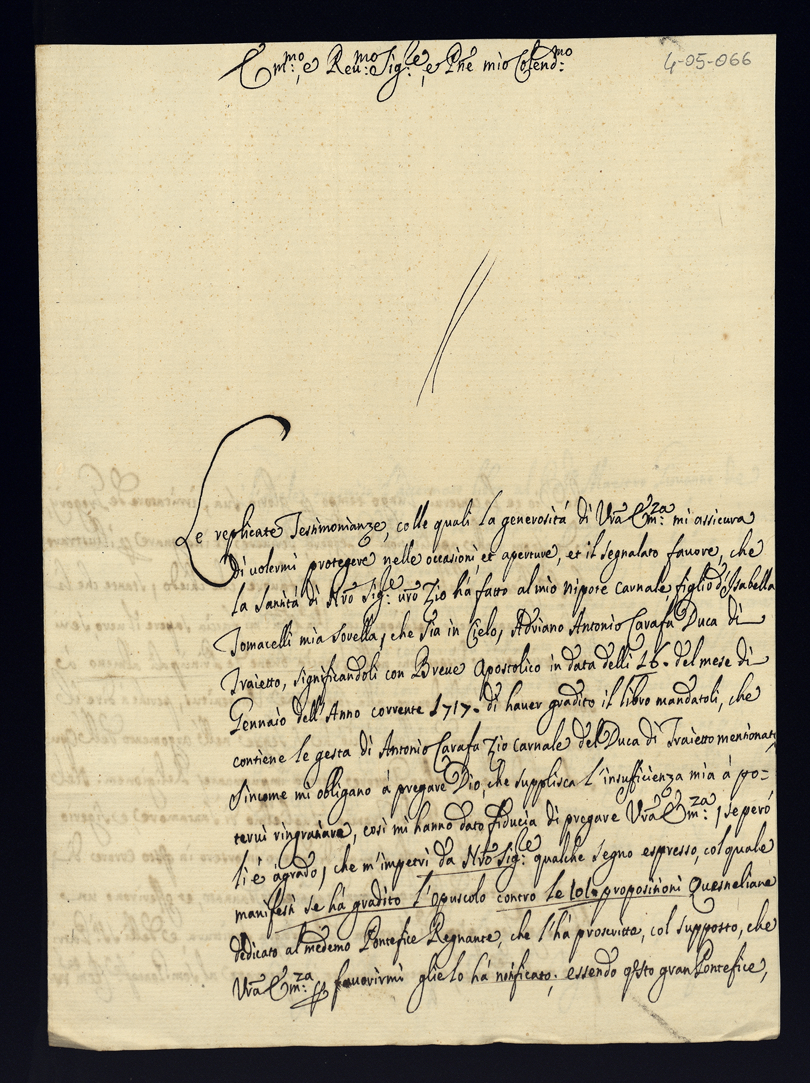 Em:mo, e Reu:mo Sig:re, e Pñe mio Colend:mo
4-05-066
Le replicate Testimonianze, colle quali la generosità di Vrã Em:za mi assicura
di volermi protegere nelle occasioni et aperture, et il segnalato favore, che
la Santità di Nrõ Sig:re uro Zio hà fatto al mio nipote carnale, figlio d'Isabella
Tomacelli mia sorella, che sia in Cielo, Adriano Antonio Carafa Duca di
Traietto, significandoli con Breue Apostolico in data delli 16. del mese di
Gennaio dell'Anno corrente 1717. di hauer gradito il libro mandatoli, che
contiene le gesta di Antonio Carafa Zio carnale del Duca di Traietto mentionato,
sincome mi obligano á pregare Dio, che supplisca l'insufficienza mia á po=
terui ringratiare, così mi hanno dato fiducia di pregare Vrã Em:za, se però
li é agrado, che m'impetri da Nrõ Sig:re qualche segno espresso, col quale
manifesti se hà gradito l'opuscolo contro le 101. propositioni Quesneliane
dedicato al medemo Pontefice Regnante, che l'hà proscritte, col supposto, che
Vrã Em:za p fauorirmi glielo hà notificato; essendo qsto gran Pontefice,